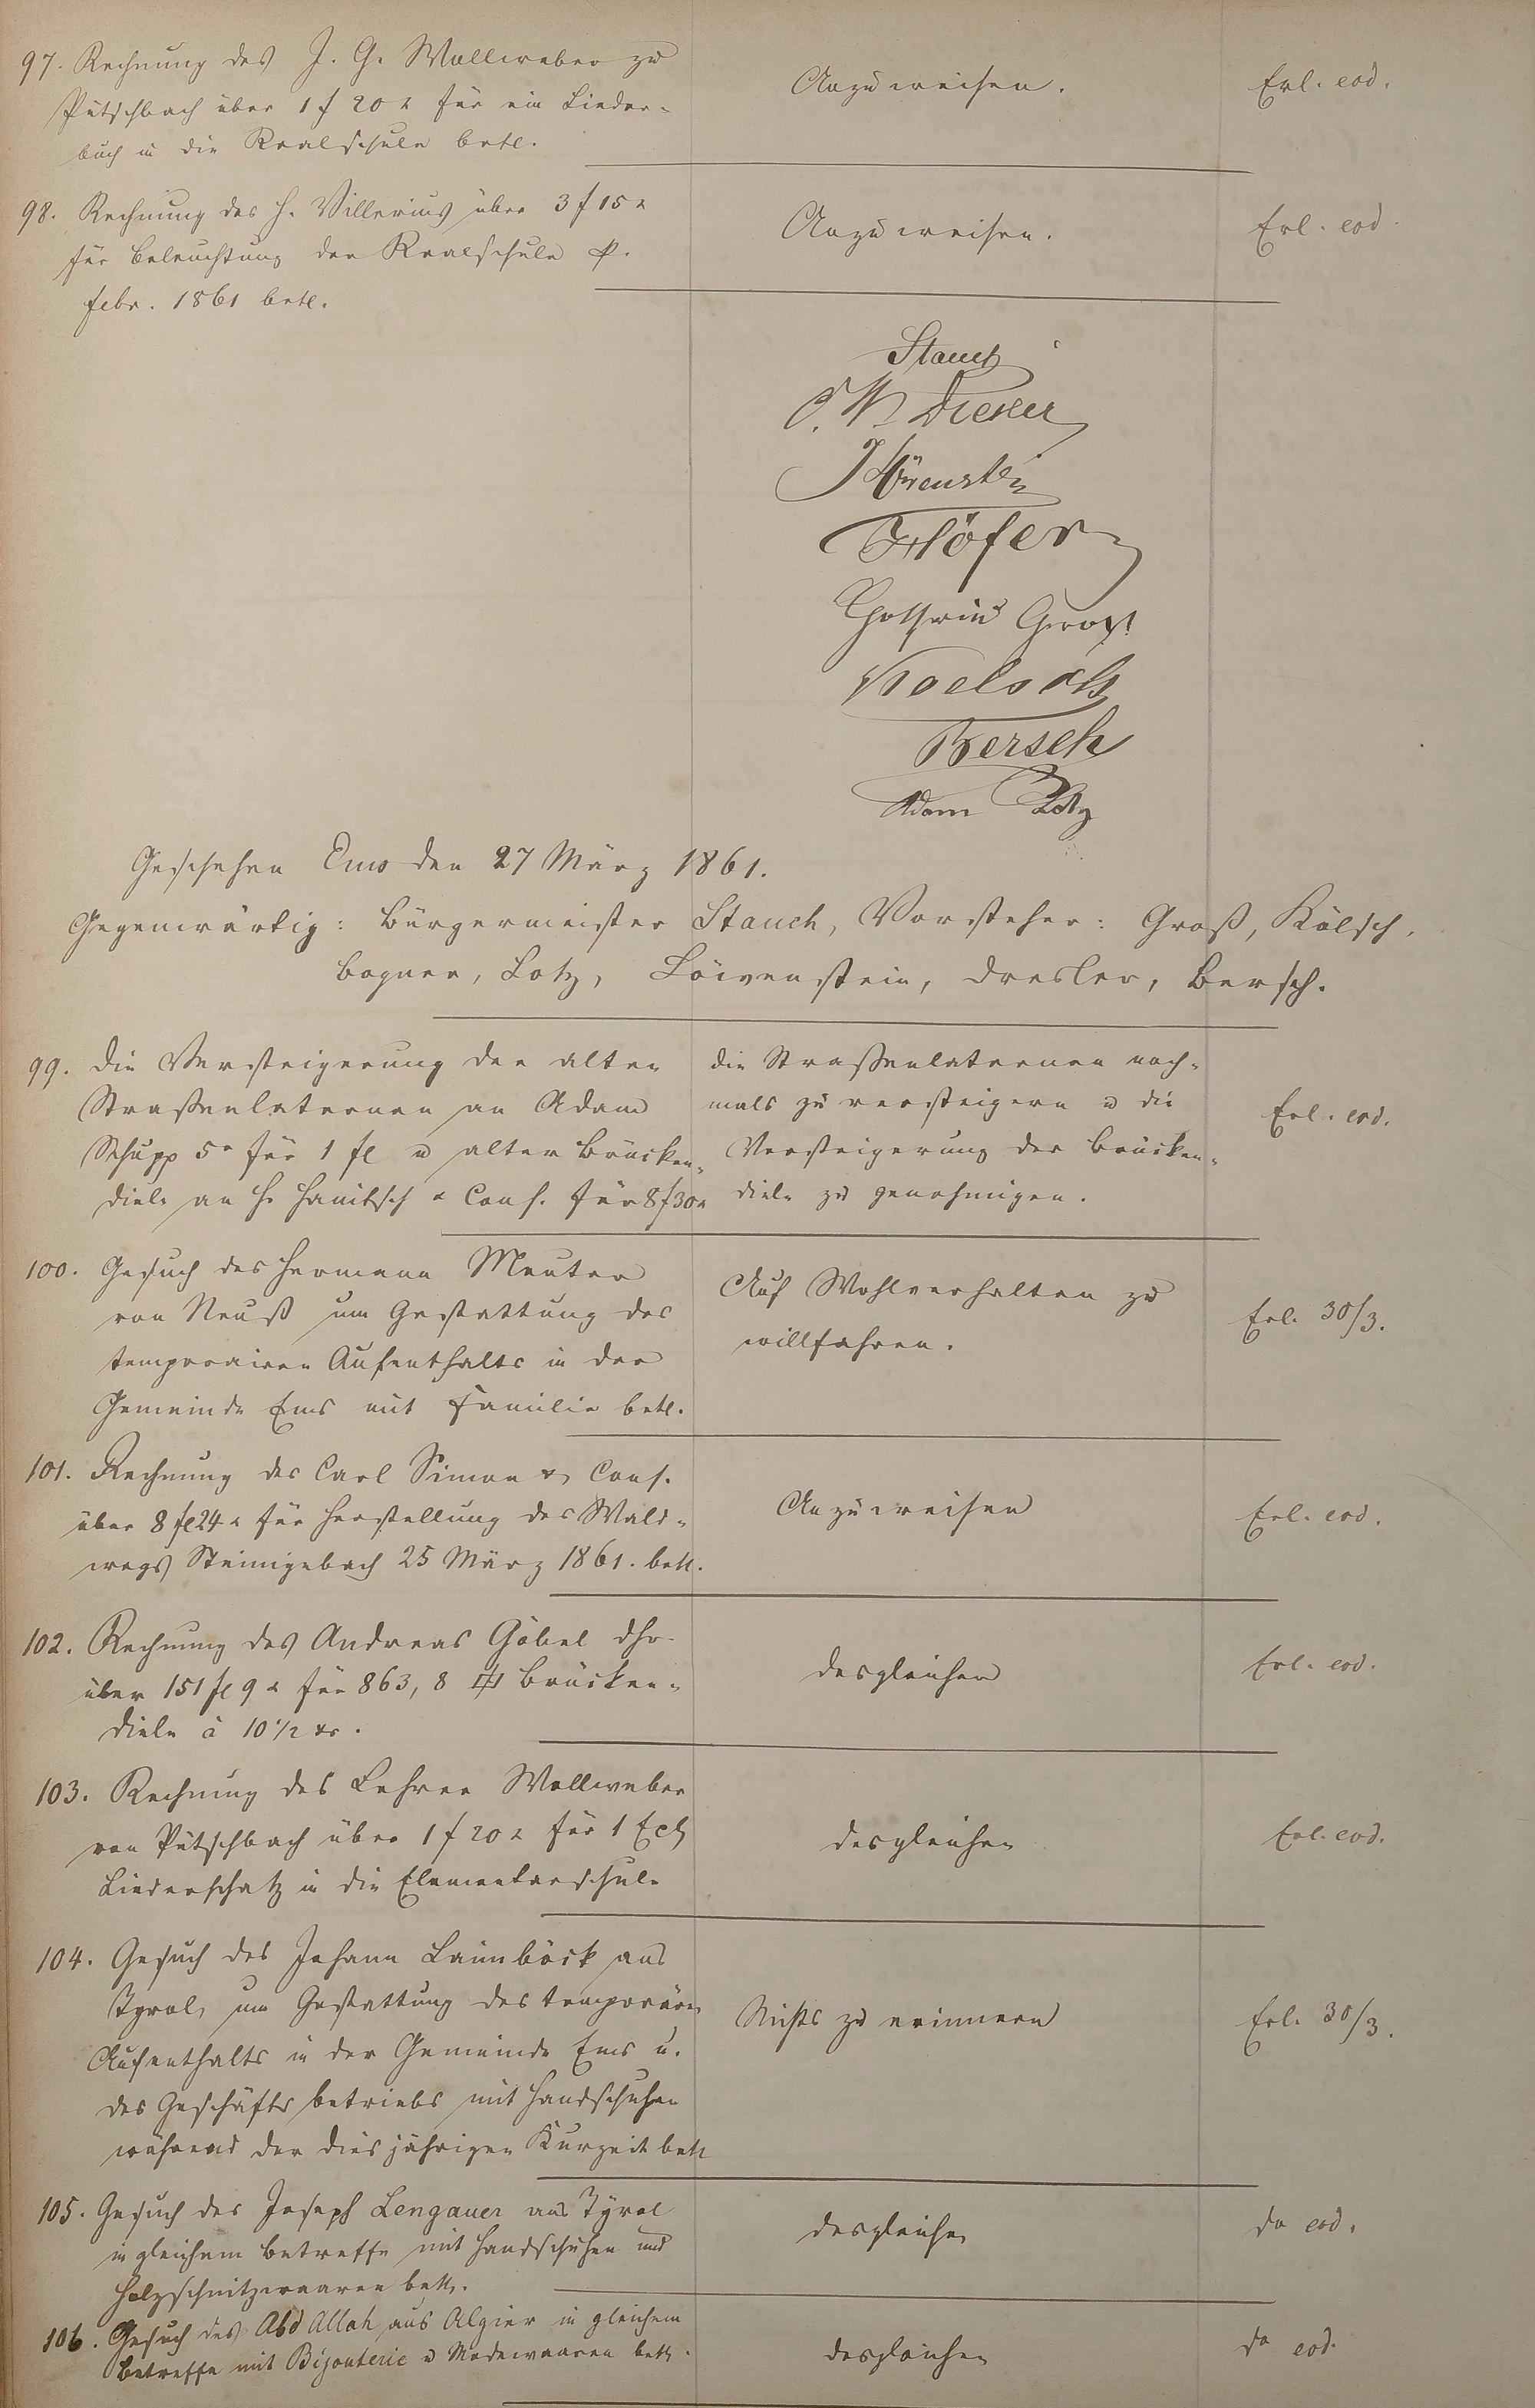 97. Rechnung des J. G. Wollweber zu
Pütschbach über 1 f 20 x für ein Lieder-
buch in die Realschule betr.
Anzuweisen.
Erl. eod.
98. Rechnung des H. Villerius über 3 f 15 x
für Beleuchtung der Realschule p.
Febr. 1861 betr.
Anzuweisen.
Erl. eod.
Stauch
Dresler
Löwenstein
Höfer
Gross
Koelsch
Bersch
Adam Lotz
Geschehen Ems den 27 März 1861.
Gegenwärtig: Bürgermeister Stauch, Vorsteher: Groß, Kölsch,
Bogner, Lotz, Löwenstein, Dresler, Bersch.
99. Die Versteigerung der alten
Straßenlaternen an Adam
Schupp für 1 fl u alter Brücken-
diele an H. Hanitsch & Cons. für 8 f 30 x
die Straßenlaternen noch-
mals zu versteigern u die
Versteigerung der Brücken-
diele zu genehmigen.
Erl. eod.
100. Gesuch des Hermann Meuter
von Neuß um Gestattung des
temporairen Aufenthalts in der
Gemeinde Ems mit Familie betr.
Auf Wohlverhalten zu
willfahren.
Erl. 30/3.
101. Rechnung des Carl Simon & Cons.
über 8 fl 24 x für Herstellung des Wald-
wegs Steinigebach 25 März 1861. betr.
Anzuweisen
Erl. eod.
102. Rechnung des Andreas Göbel dhr.
über 151 fl 9 x für 863, 8 Brücken-
diele à 10 1/2 xr.
desgleichen
Erl. eod.
103. Rechnung des Lehrer Wollweber
von Pütschbach über 1 f 20 x für 1 Expl
Liederschatz in die Elementarschule
desgleichen
Erl. eod.
104. Gesuch des Johann Laimböck aus
Tyrol, um Gestattung des temporären
Aufenthalts in der Gemeinde Ems u.
des Geschäftsbetriebs mit Handschuhen
während der diesjährigen Kurzeit betr
Nichts zu erinnern
Erl. 30/3.
105. Gesuch des Joseph Lengauer aus Tyrol
in gleichem Betreffe mit Handschuhen und
Holzschnitzwaaren betr.
desgleichen
do eod.
106. Gesuch des Abd Allah aus Algier in gleichem
Betreffe mit Bijouterie u Modewaaren betr.
desgleichen
do eod.